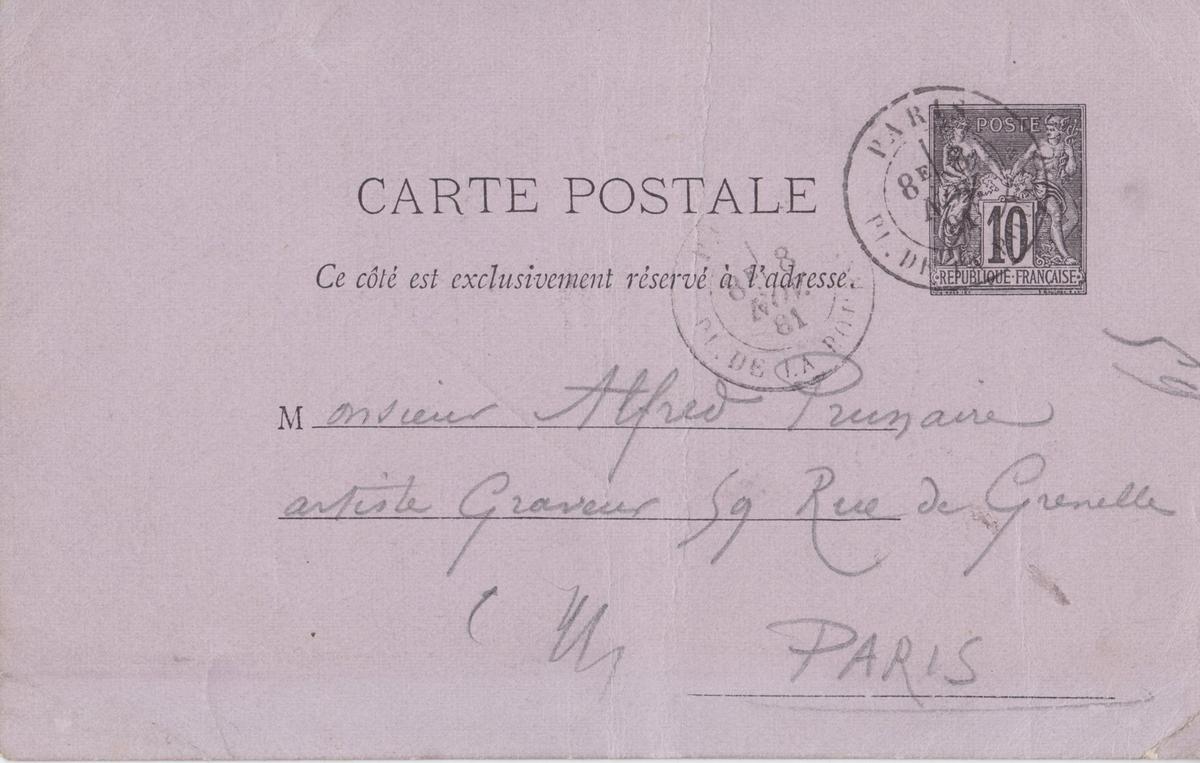 PARIS
8E
PL. DE
POSTE
10
RÉPUBLIQUE FRANÇAISE
CARTE POSTALE
Ce côté est exclusivement réservé à l'adresse.
8
NOV.
81
PL. DE LA
Monsieur Alfred Prunaire
artiste Graveur 59 Rue de Grenelle
PARIS